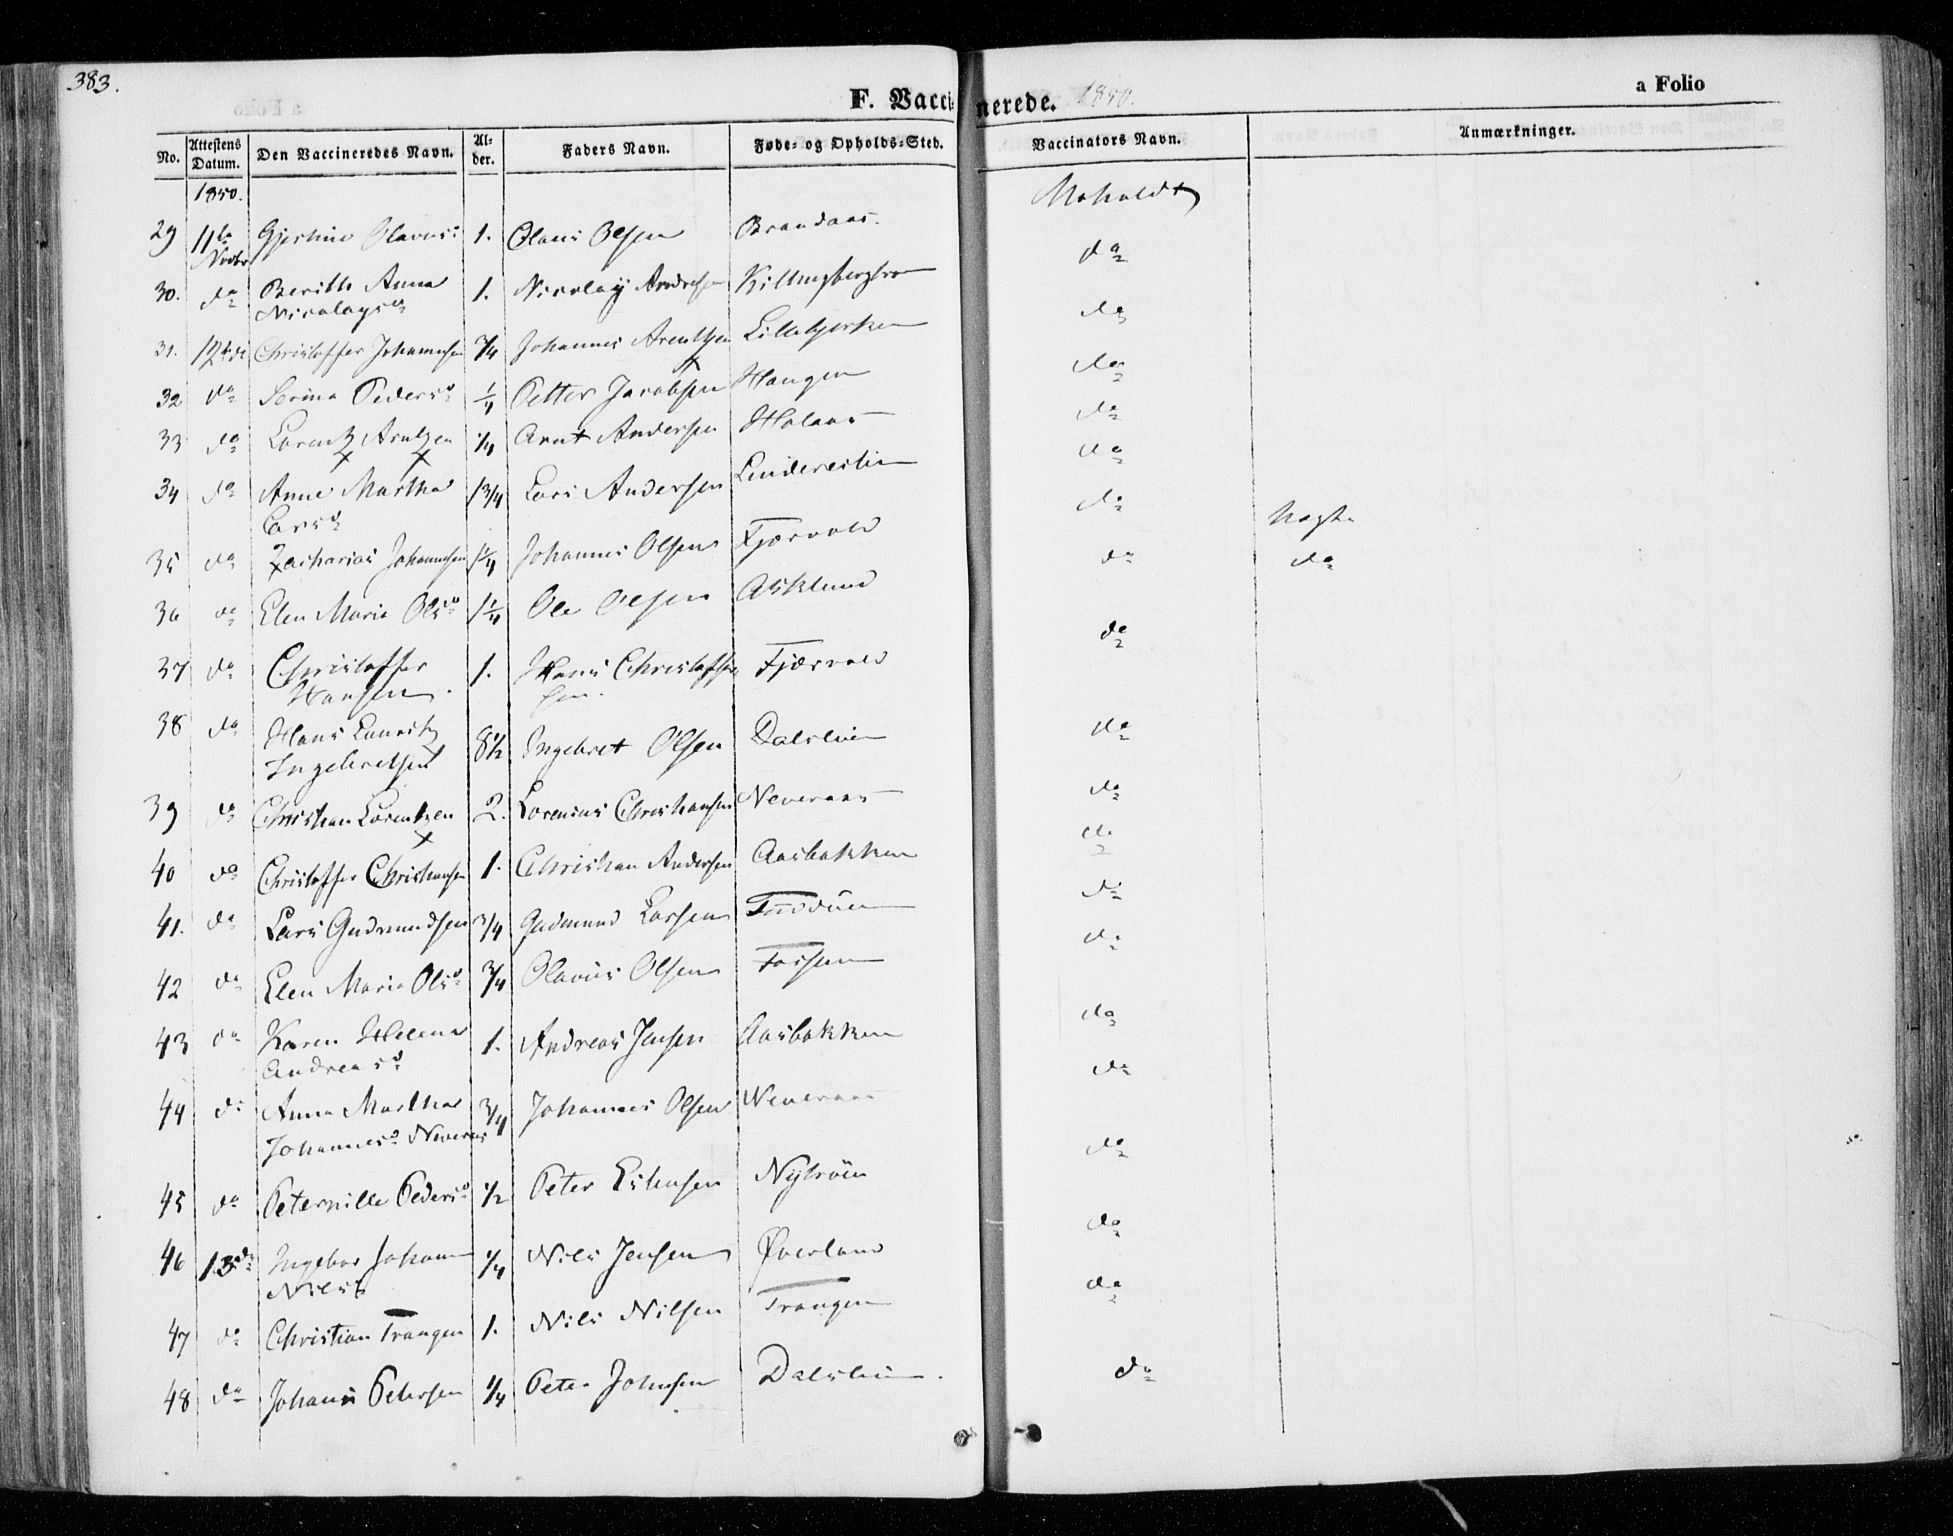 383.
F. Vaccinerede. 1850.
a Folio
No. Attestens Datum. Den Vaccineredes Navn. Alder. Faders Navn. Føde- og Opholds-Sted. Vaccinators Navn. Anmærkninger.
1850.
29 11te Novbr Gjertine Olavusd. 1. Olaus Olsen Brandaas. Moholdt
30. do Berith Anna 1. Nicolay Andresen do
Nicolaysd.
31. 12te Christoffer Johannesen 3/4 Johannes Arentzen do
32 do Serina Pedersd. 1/4 Petter Jacobsen Haugen do
33 do Lorentz Arntzen 1/4 Arnt Andersen Holaas do
34 do Anne Martha 1 3/4 Lars Andersen do
Larsd.
35 do Zacharias Johannesen 1 1/4 Johannes Olsen Fjærvold do
36 do Elen Maria Olsd. 1 1/4 Ole Olsen Asklund do do
37 do Christoffer 1. Hans Christoffer Fjærvold do
Hansen. sen.
38 do Hans Lauritz 8 1/2 Ingebret Olsen do
Ingebretsen
39 do Christian Lorentzen 2. Lorensius Christiansen Neveraas do
40 do Christoffer Christiansen 1. Christian Andersen Aasbakken do
41. do Lars Gudmundsen 3/4 Gudmund Larsen do
42 do Elen Maria Olsd. 3/4 Olavus Olsen do
43 do Karen Helena 1. Andreas Jensen Aasbakken do
Andreasd.
44 do Anna Martha 3/4 Johannes Olsen Neveraas do
Johannesd. Neveraas
45 do Peternille Pedersd. 1/2 Peter Nytrøen do
46 13de Ingebor Johanna 1/4 Nils Jensen Øverland do
Nilsd.
47 do Christian Trangen 1. Nils Nilsen Trangen do
48 do Johan Petersen 1/4 Peter Johnsen do